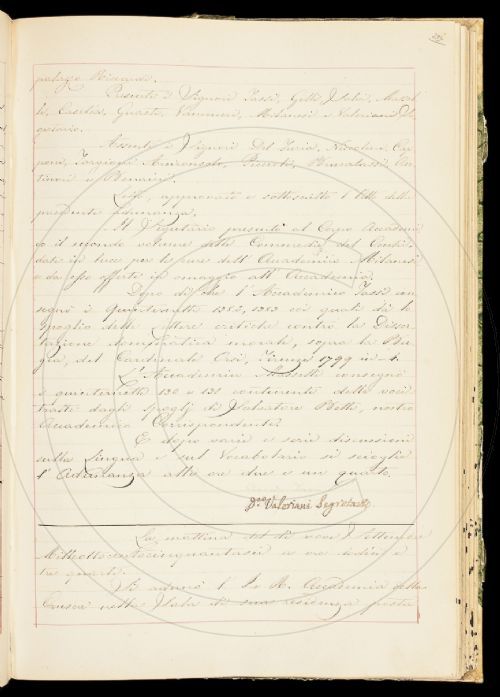 palazzo Riccardi.
Presenti i Signori Tassi, Gelli,
Casella, Guasti, Vannucci, Milanesi e Valeriani Se
gretario.
Assenti i Signori Del Furia, Niccolini, Ca
poni,
tinori e Bonaini.
Letto, approvato e sottoscritto l' Atto della
precedente Adunanza.
Il Segretario presentò al Corpo Accademi
co il secondo volume della Commedia del
dato in luce per le cure dell' Accademico Milanesi
e da esso offerto in omaggio all' Accademia.
Dopo di che l' Accademico Tassi con
segnò i Quinternetti 1382, 1383 coi quali dà lo
Spoglio delle Lettere critiche contro la Disser
tazione sopra la Bu
gia, del Cardinale Orsi, Firenze 1799 in-4.
L' Accademia consegnò
i quinternetti 130 e 131 contenenti delle voci
tratte dagli Spogli di Salvatore Betti, nostro
Accademico Corrispondente.
E dopo varie e serie discussioni
sulla Lingua e sul Vocabolario si sciolse
l' Adunanza alle ore due e un quarto.
D.co Valeriani Segretario
La mattina del dì nove Settembre
Milleottocentocinquantasei a ore undici e
tre quarti.
Si adunò l' I. e R. Accademia della
Crusca nella Sala di sua residenza posta